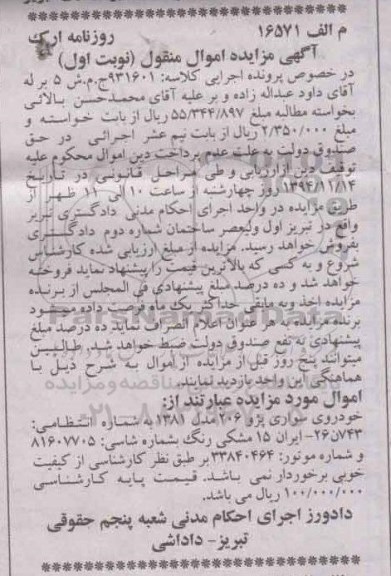 م الف ۱۶۵۷۱ روزنامه ارک
آگهی مزایده اموال منقول (نوبت اول)
در خصوص پرونده اجرایی کلاسه: ۹۳۱۶۰۱ج.م.ش ۵ بر له
آقای داود عبداله زاده و بر علیه آقای محمدحسن بالائی
بخواسته مطالبه مبلغ ۵۵/۳۴۴/۸۹۷ ریال از بابت خواسته و
مبلغ ۲/۳۵۰/۰۰۰ ریال از بابت نیم عشر اجرائی در حق
صندوق دولت به علت عدم پرداخت دین اموال محکوم علیه
توقیف دین ارزیابی و طی مراحل قانونی در تاریخ
۱۳۹۴/۱۱/۱۴ روز چهارشنبه از ساعت ۱۰ الی ۱۱ ظهر از
طریق مزایده در واحد اجرای احکام مدنی دادگستری تبریز
واقع در تبریز اول ولیعصر ساختمان شماره دوم دادگستری
بفروش خواهد رسید. مزایده از مبلغ ارزیابی شده کارشناس
شروع و به کسی که بالاترین قیمت را پیشنهاد نماید فروخته
خواهد شد و ده درصد مبلغ پیشنهادی فی المجلس از برنده
مزایده اخذ و به مابقی حداکثر یک ماه فرصت داده میشود
برنده مزایده به هر عنوان اعلام انصراف نماید ده درصد مبلغ
پیشنهادی به نفع صندوق دولت ضبط خواهد شد. طالبین
میتوانند پنج روز قبل از مزایده از اموال به شرح ذیل با
هماهنگی این واحد بازدید نمایند.
اموال مورد مزایده عبارتند از:
خودروی سواری پژو ۲۰۶ مدل ۱۳۸۱ به شماره انتظامی:
۷۴۳ن۲۶- ایران ۱۵ مشکی رنگ بشماره شاسی: ۸۱۶۰۷۷۰۵
و شماره موتور: ۳۳۸۴۰۴۶۴ بر طبق نظر کارشناسی از کیفیت
خوبی برخوردار نمی باشد. قیمت پایه کارشناسی
۱۰۰/۰۰۰/۰۰۰ ریال می باشد.
دادورز اجرای احکام مدنی شعبه پنجم حقوقی
تبریز- داداشی